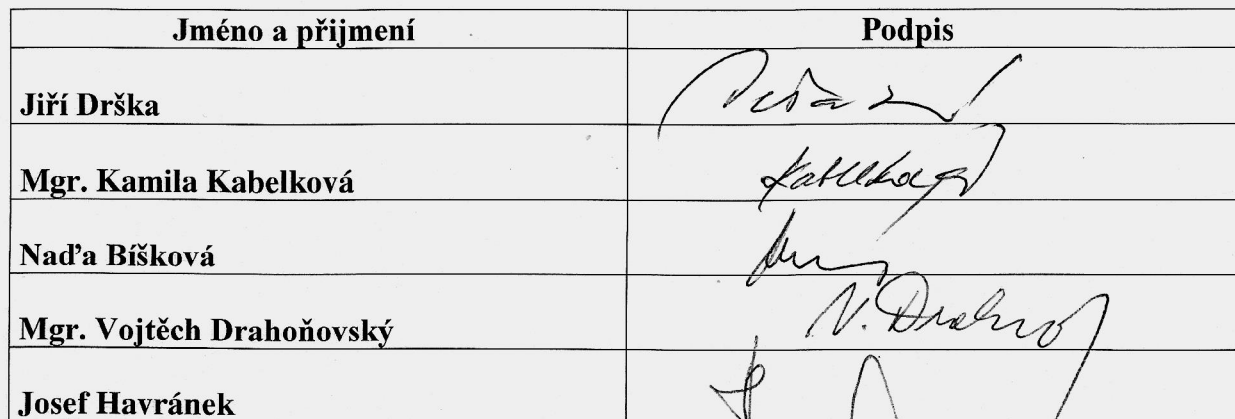 Jméno a příjmení Podpis
Jiří Drška
Mgr. Kamila Kabelková Kabelková
Naďa Bíšková
Mgr. Vojtěch Drahoňovský V.
Josef Havránek